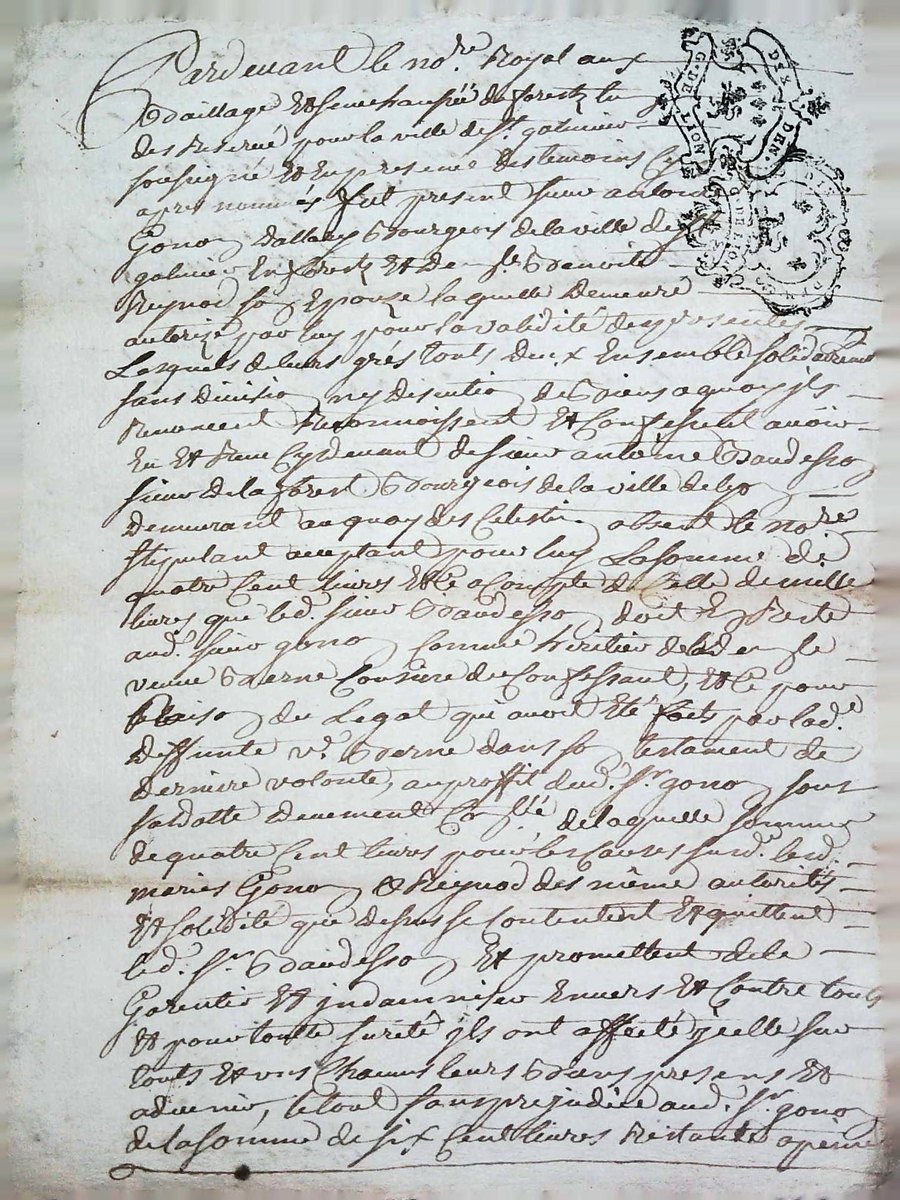 Pardevant le no.re Royal aux
Bailliage Et senechaussée de forestz lu
des Reservé pour la ville de St. galmier
soussigné Et En presence des temoins Cy
apres nommés fut present sieur antoine
Gonon Bourgeois de la ville de St
galmier En forestz Et dem.lle Benoite
Reynod son Epouze laquelle demeure
autorizé par luy pour la validité des presentes
Lesquels de leurs grés touts deux Ensemble solidairement
sans division ny discution de Biens a quoy ils
Renoncent Reconnoissent Et Confessent avoir
En Et Receu Cydevant de sieur antoine Baudesson
sieur de la forest Bourgeois de la ville de lyon
demeurant au quay des Celestins absent le no.re
stipulant aceptant pour luy La somme de
quatre Cent livres Et Ce a Compte de Celle de mille
livres que led. sieur Baudesson doit En Reste
aud. sieur gonon Comme heritier de la dem.lle
veuve Berne Cousine du Confessant, Et Ce pour
Raison du Legat qui avoit Eté faits par lad.e
deffunte v.e Berne dans son testament de
derniere volonté, au proffit dud. Sr. gonon sous
sa datte deuement Con.llé de laquelle somme
de quatre Cent livres pour les Causes susd. lesd.
mariés Gonon & Reynod des même autorités
Et solidité que dessus se Contentent Et quittent
led. Sr. Baudesson Et promettent de le
Garentir Et indamniser Envers Et Contre touts
Et pour toutte sureté ils ont affecté ycelle sur
touts Et uns Chacuns leurs Biens presens Et
advenir, le tout sans prejudice aud. Sr. gonon
de la somme de six Cent livres Restante a peine